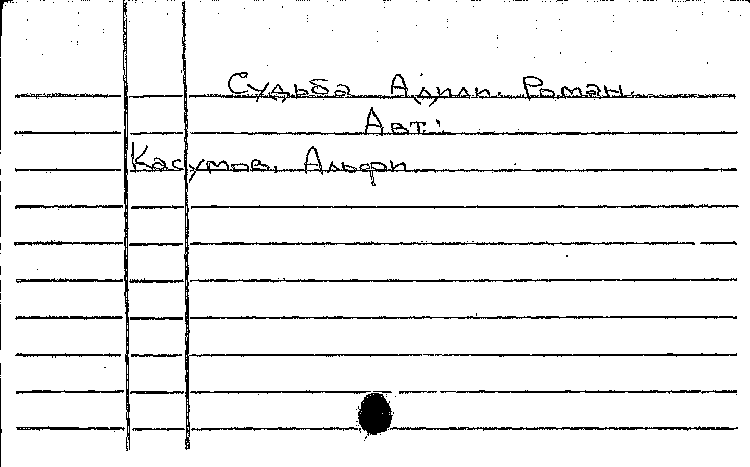 Судьба Адили. Роман.
Авт.:
Касумов, Альфи